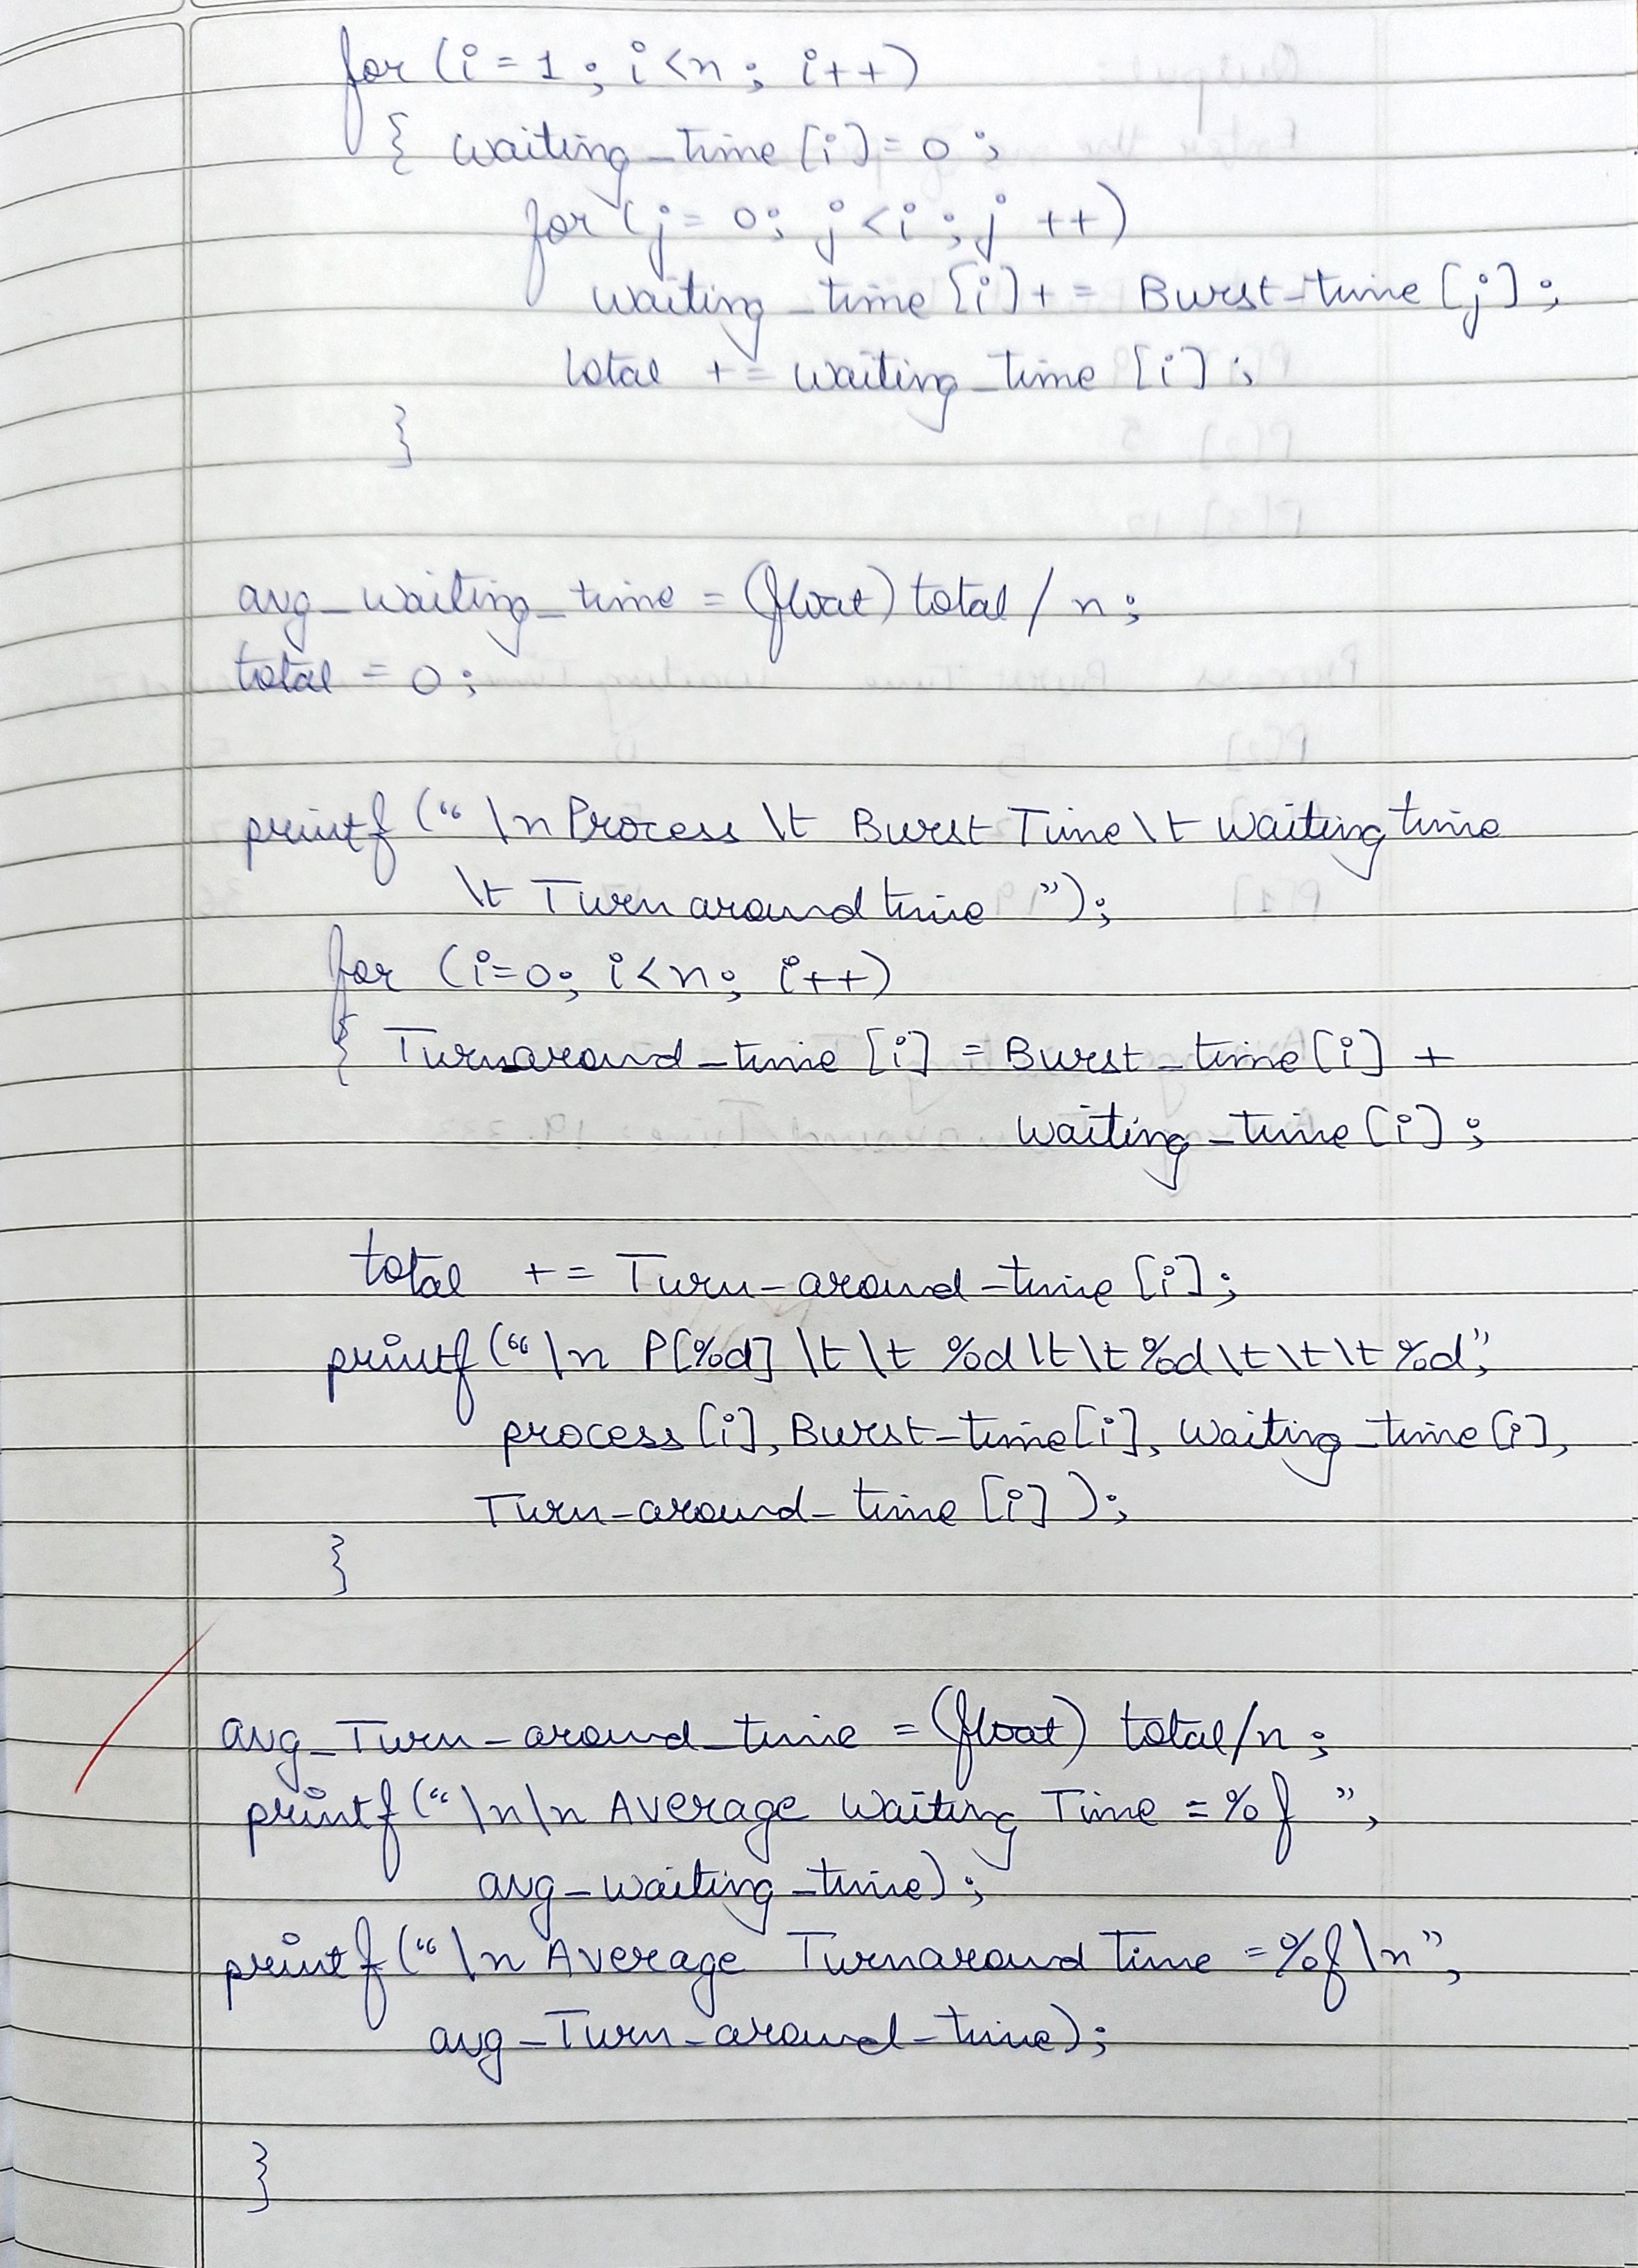 for (i = 1 ; i < n ; i++)
{ waiting_time [i] = 0 ;
for (j = 0; j < i ; j ++)
waiting_time [i] + = Burst-time [j] ;
total + = waiting_time [i] ;
}
avg_waiting_time = (float) total / n ;
total = 0 ;
printf (“ \n Process \t Burst Time \t Waiting time
\t Turn around time ”);
for (i=0; i<n; i++)
{ Turnaround_time [i] = Burst_time [i] +
waiting_time [i] ;
total += Turn-around-time [i] ;
printf (“ \n P[%d] \t \t %d \t \t %d \t \t \t %d”,
process [i], Burst-time[i], Waiting_time [i],
Turn-around-time [i] );
}
avg_Turn-around_time = (float) total/n ;
printf (“ \n\n Average Waiting Time = %f ”,
avg_waiting_time) ;
printf (“ \n Average Turnaround Time = %f \n”,
avg_Turn-around-time);
}